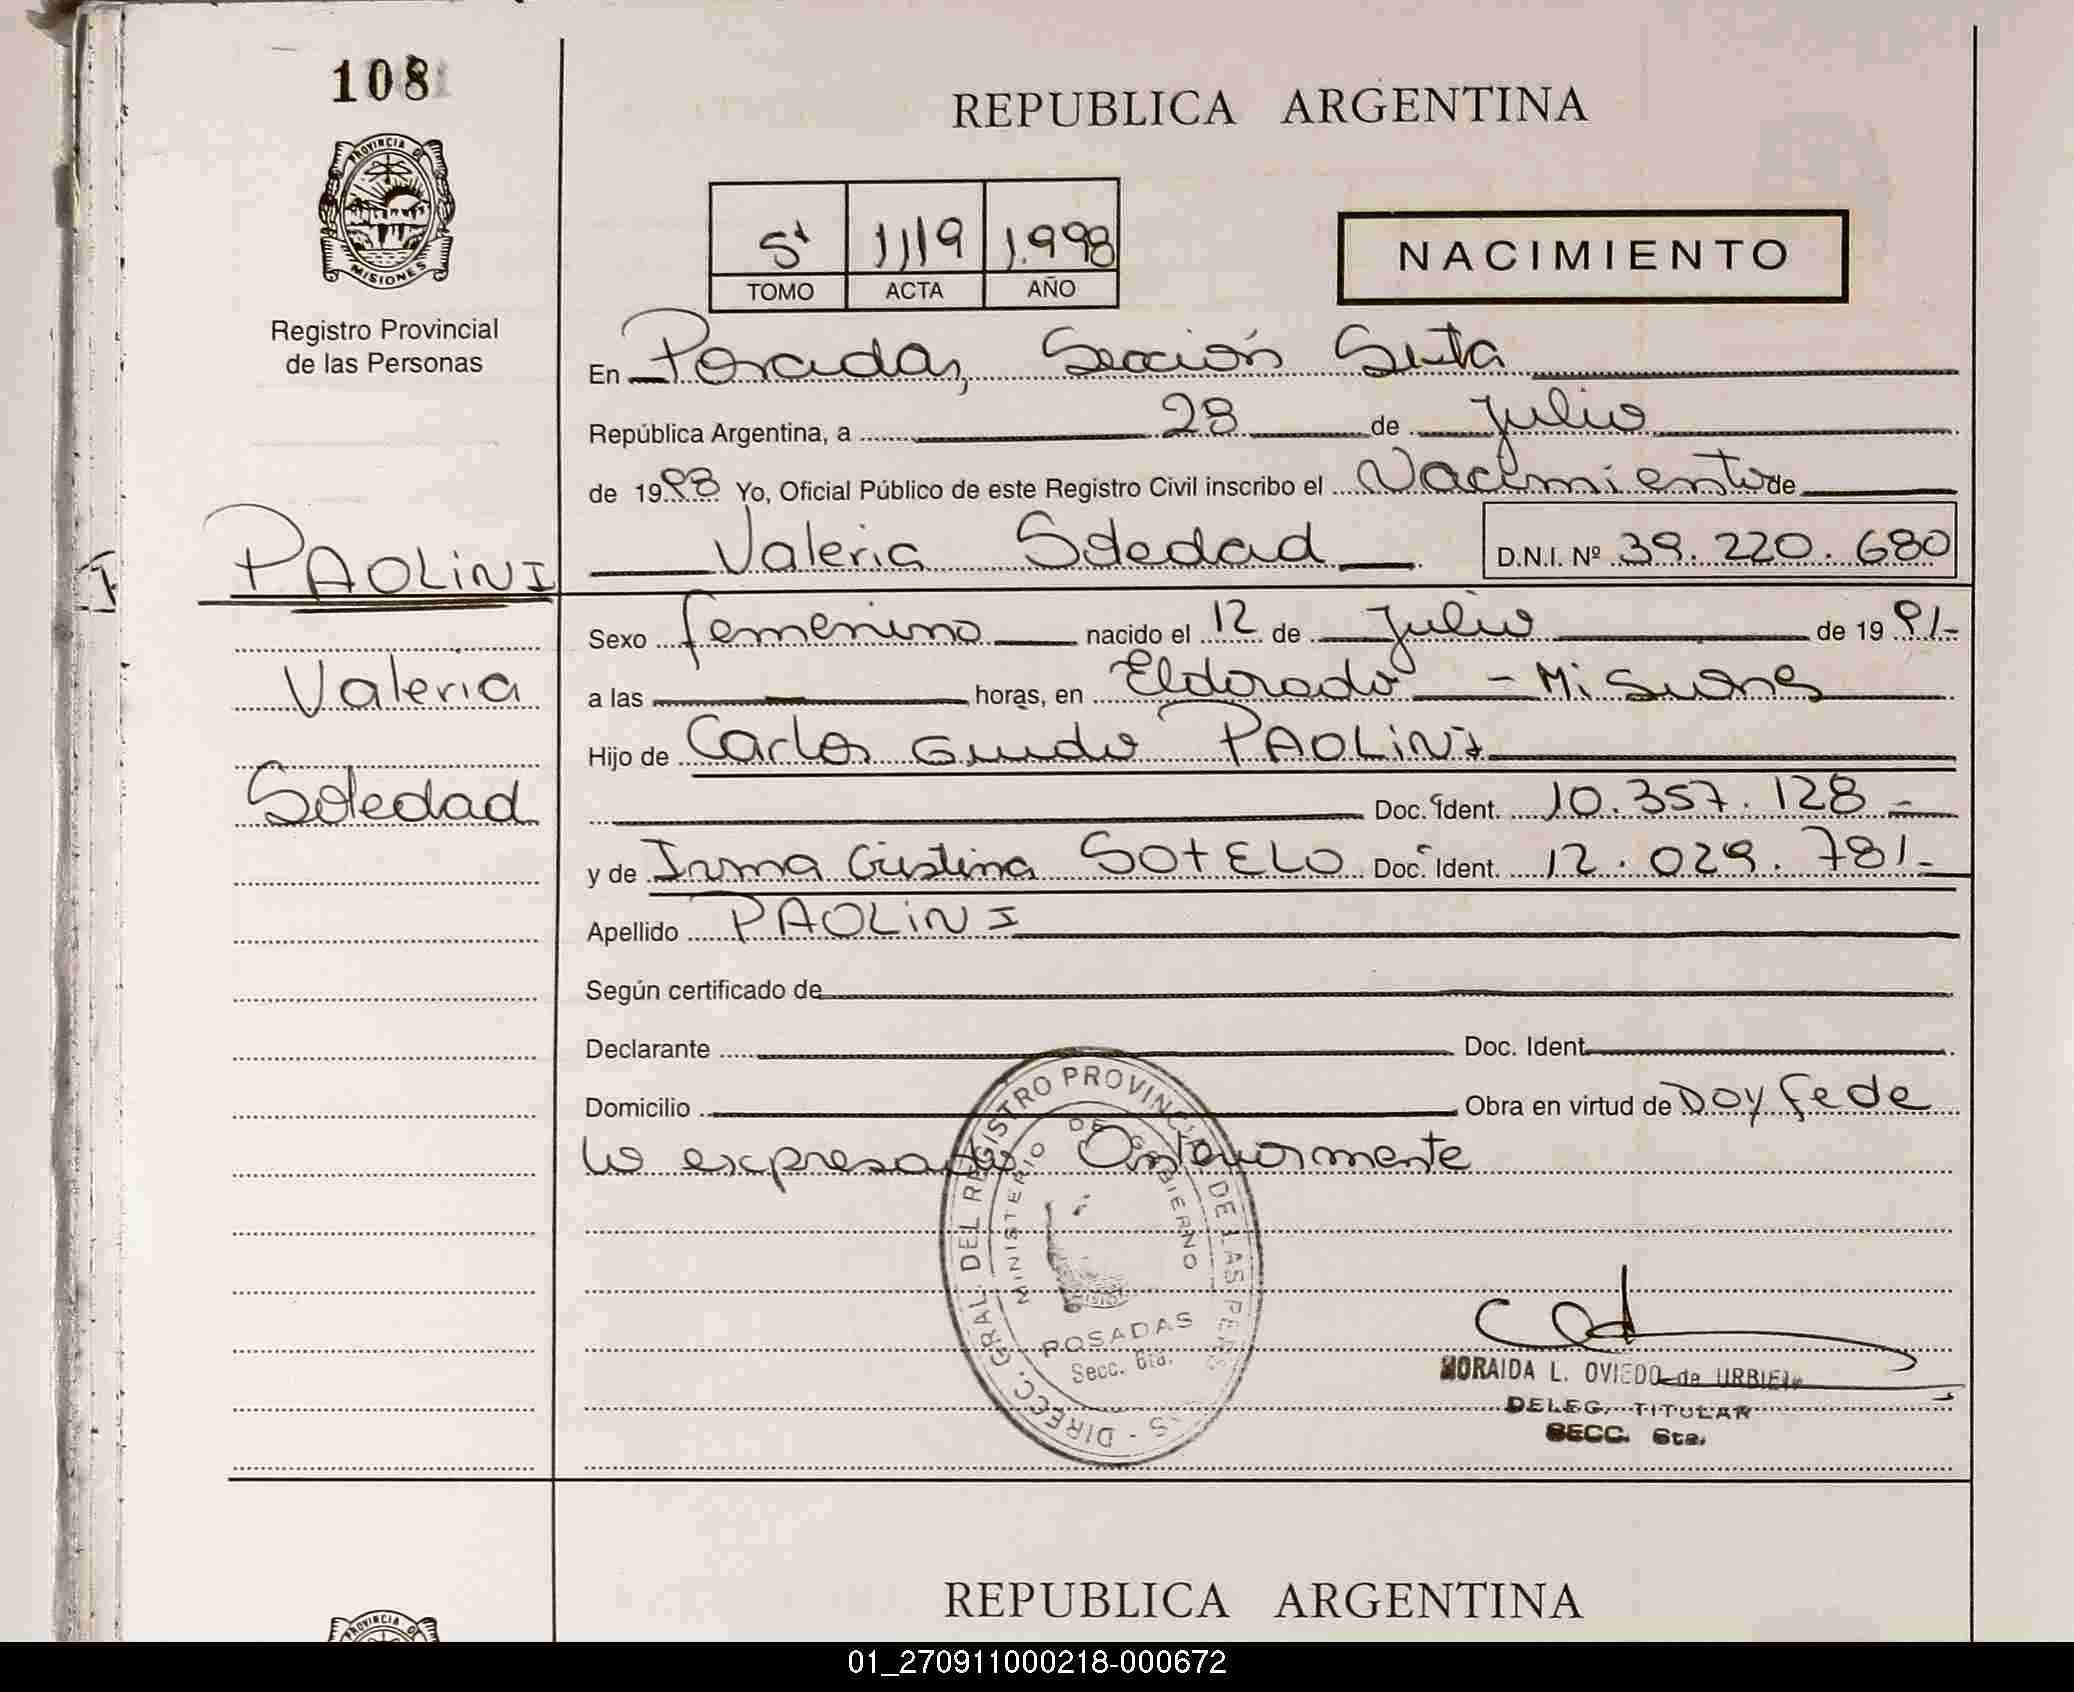 108
REPUBLICA ARGENTINA
PROVINCIA DE
MISIONES
Registro Provincial
de las Personas
5º 1119 1.998
TOMO ACTA AÑO
NACIMIENTO
En Posadas, Sección Sexta
República Argentina, a 28 de Julio
de 1998 Yo, Oficial Público de este Registro Civil inscribo el Nacimiento de
Valeria Soledad D.N.I. Nº 39.220.680
PAOLINI
Valeria
Soledad
Sexo femenino nacido el 12 de Julio de 1991-
a las horas, en Eldorado - Misiones
Hijo de Carlos Guido PAOLINI
Doc. Ident. 10.357.128-
y de Irma Cristina SOTELO Doc. Ident. 12.029.781-
Apellido PAOLINI
Según certificado de
Declarante Doc. Ident.
Domicilio Obra en virtud de Doy fe de
lo expresado Anteriormente
DIRECC. GRAL. DEL REGISTRO PROVINCIAL DE LAS PERS
MINISTERIO DE GOBIERNO
POSADAS
Secc. 6ta.
L. OVIEDO de
DELEG. TITULAR
SECC. 6ta.
REPUBLICA ARGENTINA
PROVINCIA DE
01_270911000218-000672